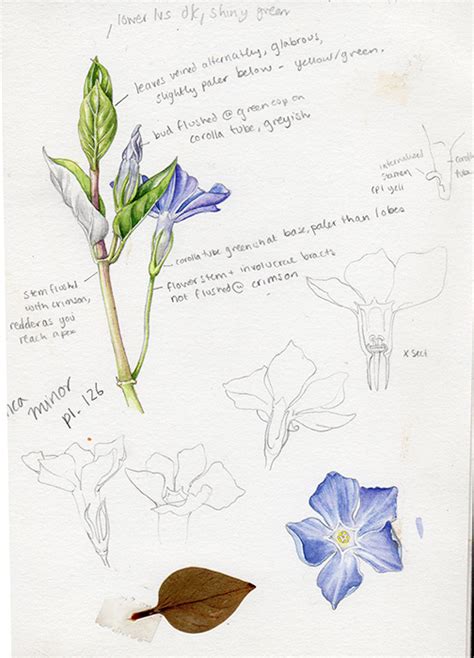 , lower lvs dk, shiny green
leaves veined alternately, glabrous,
slightly paler below - yellow/green.
bud flushed @ green cap on
corolla tube, greyish
internalised
stamen
corolla
tube
corolla tube greenish at base, paler than lobes
flower stem + involucral bracts
not flushed @ crimson
stem flushed
with crimson,
redder as you
reach apex
x sect
minor
pl. 126